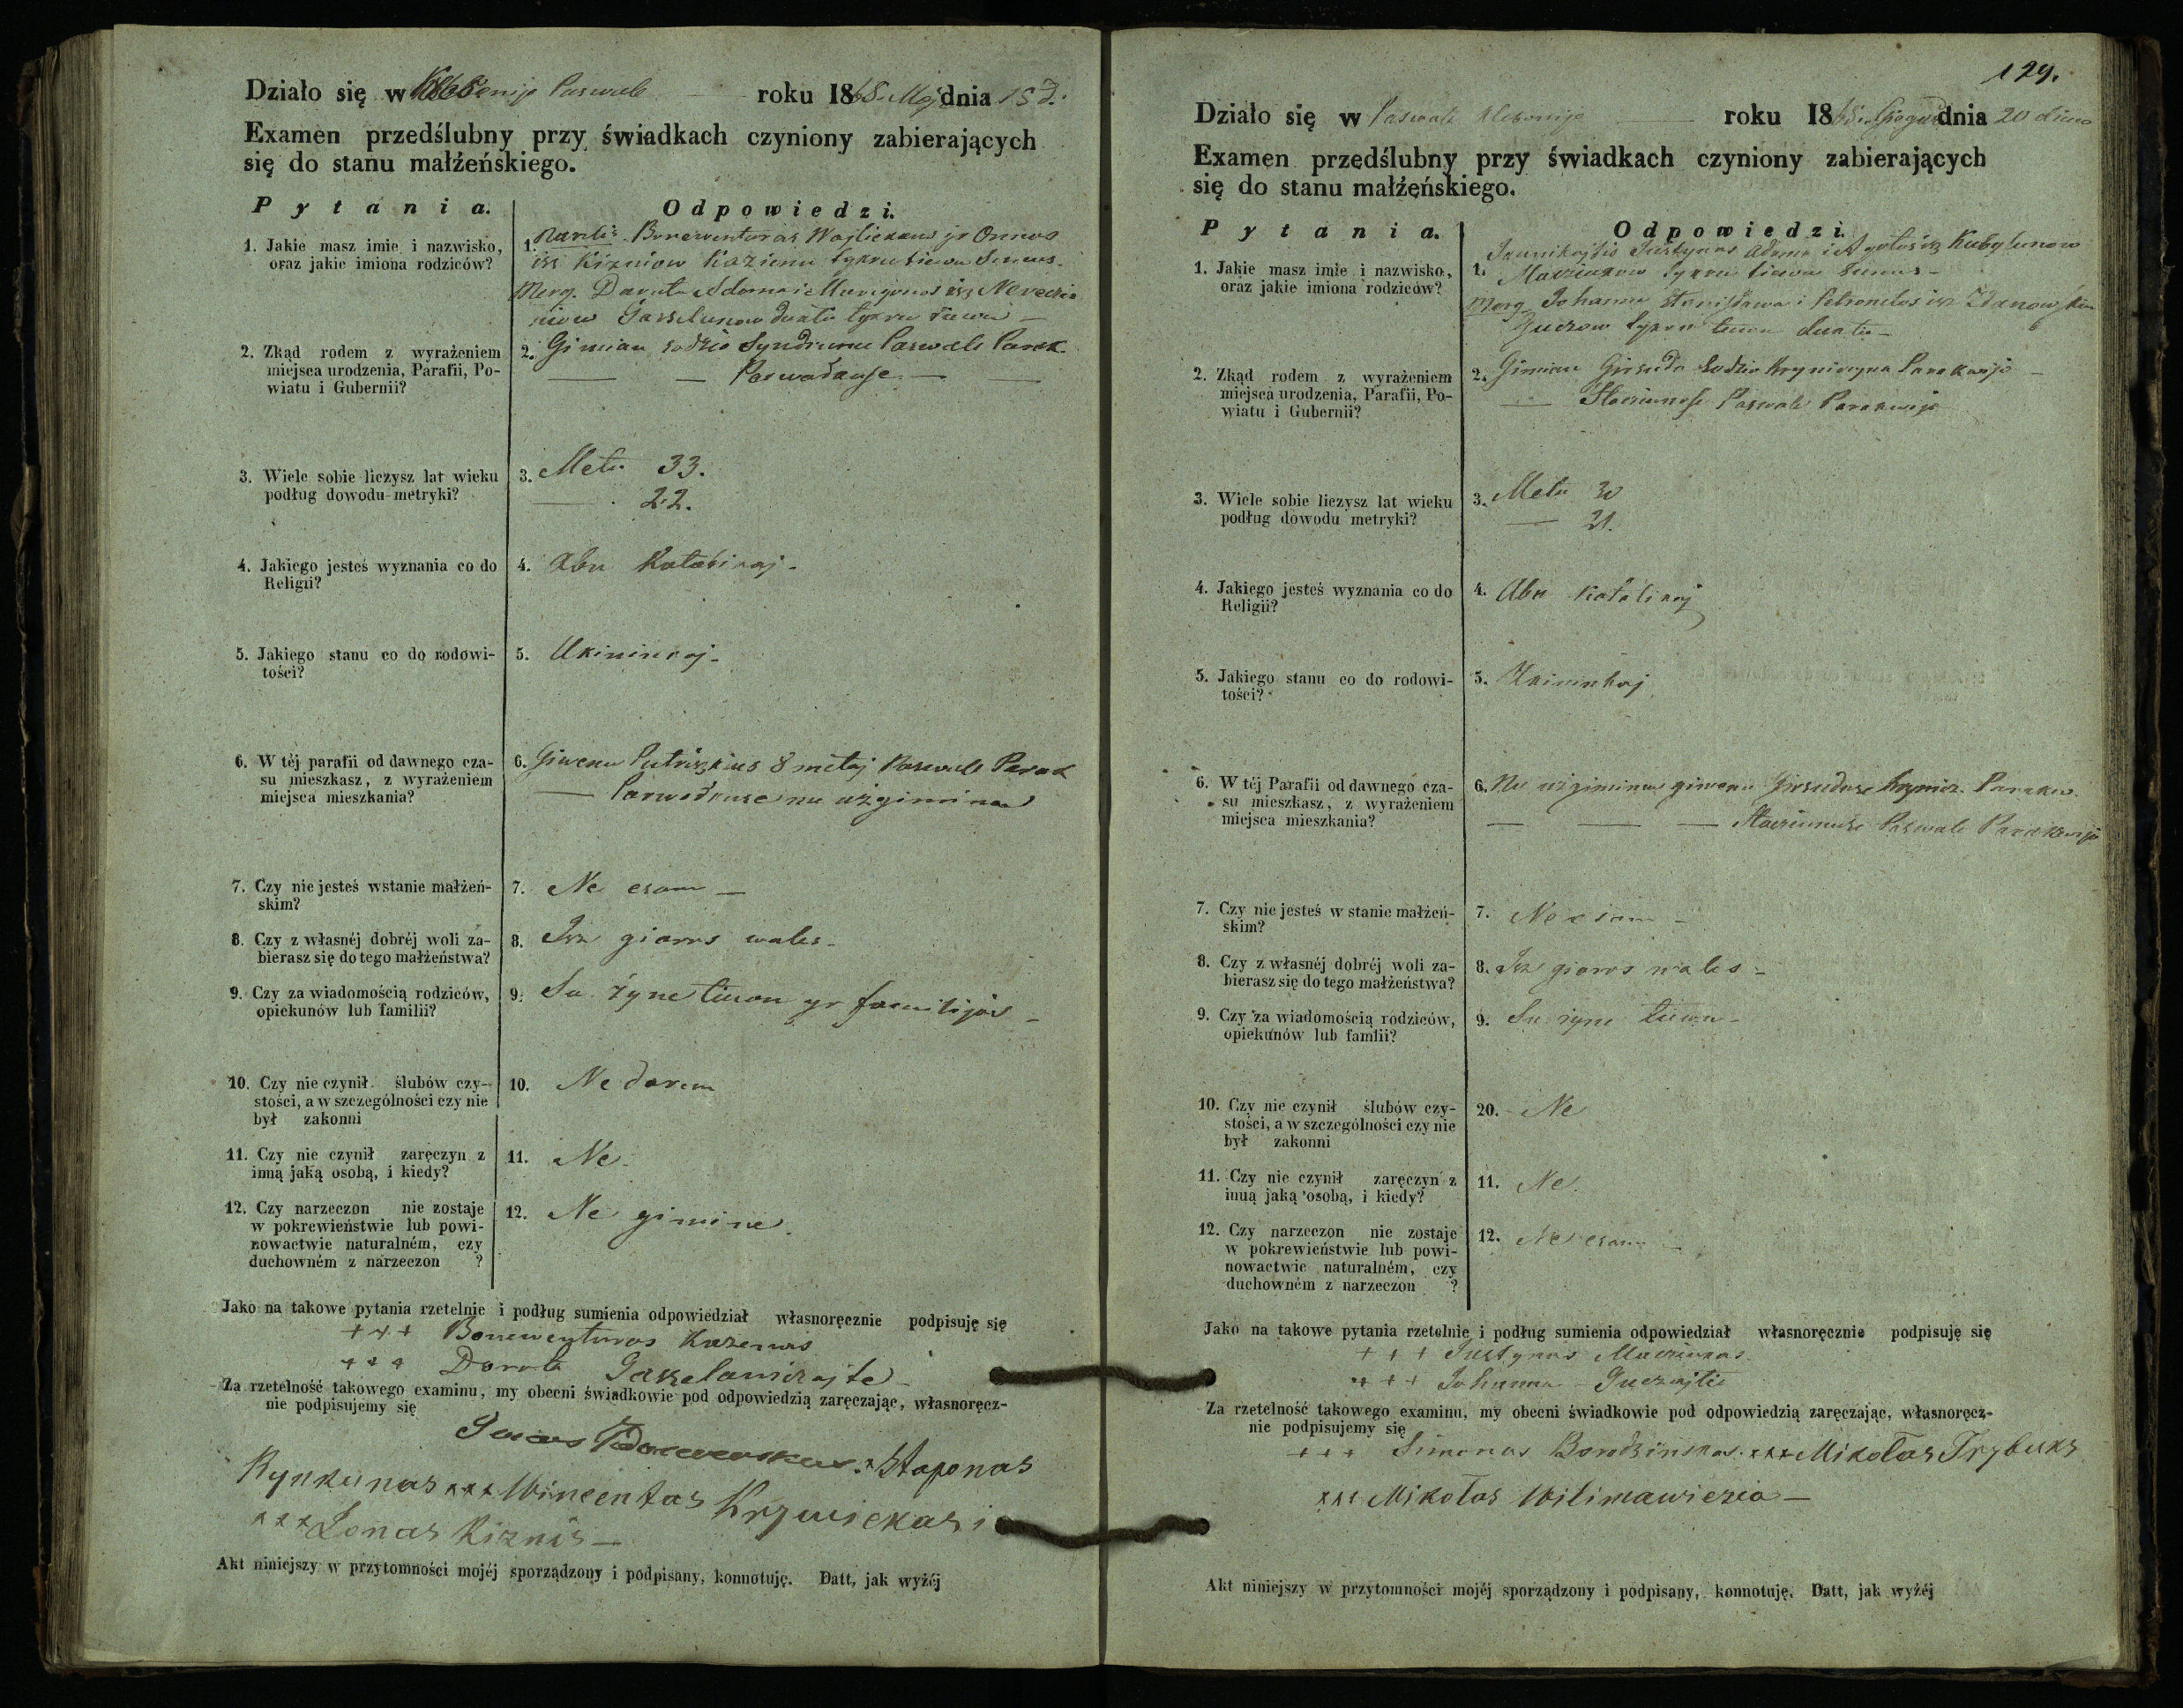 Działo się w Klebonijo Paswale roku 1868 Maj dnia 15 d.
Examen przedślubny przy świadkach czyniony zabierających
się do stanu małżeńskiego.
Pytania. Odpowiedzi.
1. Jakie masz imie i nazwisko,
oraz jakie imiona rodziców?
1. Bonawenturas Wojciekaus yr Onnos
isz Kizniow Kazienu tykru tiewu Sunus.
Merg. Darata Adoma i Marijonos isz
Gasselunow duktu tykru tiewu
2. Zkąd rodem z wyrażeniem
miejsca urodzenia, Parafii, Po-
wiatu i Gubernii?
2. Gimiau sodzio Paswale Parak.
3. Wiele sobie liczysz lat wieku
podług dowodu metryki?
3. Metu 33.
22.
4. Jakiego jesteś wyznania co do
Religii?
4. Abu Katalikaj
5. Jakiego stanu co do rodowi-
tości?
5. Ukininkaj
6. W téj parafii od dawnego cza-
su mieszkasz, z wyrażeniem
miejsca mieszkania?
6. Giwenu 8 metaj Paswale Parak
nu użgimima
7. Czy nie jesteś wstanie małżeń-
skim?
7. Ne esam
8. Czy z własnéj dobréj woli za-
bierasz się do tego małżeństwa?
8. Isz gieros wales
9. Czy za wiadomością rodziców,
opiekunów lub familii?
9. Su żyne tiwou yr familijos
10. Czy nie czynił ślubów czy-
stości, a w szczególności czy nie
był zakonni
10. Ne darem
11. Czy nie czynił zaręczyn z
inną jaką osobą, i kiedy?
11. Ne
12. Czy narzeczon nie zostaje
w pokrewieństwie lub powi-
nowactwie naturalném, czy
duchowném z narzeczon ?
12. Ne gimine
Jako na takowe pytania rzetelnie i podług sumienia odpowiedział własnoręcznie podpisuję się
+++ Bonewenturas Kazenas
+++ Darata Gasselawiczajte
Za rzetelność takowego examinu, my obecni świadkowie pod odpowiedzią zaręczając, własnoręcz-
nie podpisujemy się
Staponas
Rynkunas xxx Wincentas Krzwickas i
xxx Jonas Kiznis
Akt niniejszy w przytomności mojéj sporządzony i podpisany, konnotuję. Datt, jak wyżéj
129.
Działo się w Paswale Klebonijo roku 1868 dnia 20 dieno
Examen przedślubny przy świadkach czyniony zabierających
się do stanu małżeńskiego.
Pytania. Odpowiedzi.
1. Jakie masz imie i nazwisko,
oraz jakie imiona rodziców?
1. Jaunikajtis Justynas Adoma i Agotos isz Kubylunow
Macziukow tykru tiewu Sunus
Merg. Johanna Stanisława i Petroneles isz Zdanowskiu
Guczow tykru tiewu duktu
2. Zkąd rodem z wyrażeniem
miejsca urodzenia, Parafii, Po-
wiatu i Gubernii?
2. Gimiau Girsudu sodzio Parakwijo
Paswale Parakwijo
3. Wiele sobie liczysz lat wieku
podług dowodu metryki?
3. Metu 30
21.
4. Jakiego jesteś wyznania co do
Religii?
4. Abu Katalikaj
5. Jakiego stanu co do rodowi-
tości?
5. Ukininkaj
6. W téj Parafii od dawnego cza-
su mieszkasz, z wyrażeniem
miejsca mieszkania?
6. Nu użgimima giwenu Girsuduse Parakw.
Paswale Parakwijo
7. Czy nie jesteś w stanie małżeń-
skim?
7. Ne esam
8. Czy z własnéj dobréj woli za-
bierasz się do tego małżeństwa?
8. Isz gieros wales
9. Czy za wiadomością rodziców,
opiekunów lub famlii?
9. Su żyne tiewu
10. Czy nie czynił ślubów czy-
stości, a w szczególności czy nie
był zakonni
20. Ne
11. Czy nie czynił zaręczyn z
inuą jaką osobą, i kiedy?
11. Ne.
12. Czy narzeczon nie zostaje
w pokrewieństwie lub powi-
nowactwie naturalném, czy
duchowném z narzeczon ?
12. Ne esam
Jako na takowe pytania rzetelnie i podług sumienia odpowiedział własnoręcznie podpisuję się
+++ Justynas Macziukas.
+++ Johanna Guczajtie
Za rzetelność takowego examinu, my obecni świadkowie pod odpowiedzią zaręczając, własnoręcz-
nie podpisujemy się
+++ Simonas Barodzinskas. xxx Mikołas Trybuks
xxx Mikołas Wilimawiczia
Akt niniejszy w przytomności mojéj sporządzony i podpisany, konnotuję. Datt, jak wyżéj